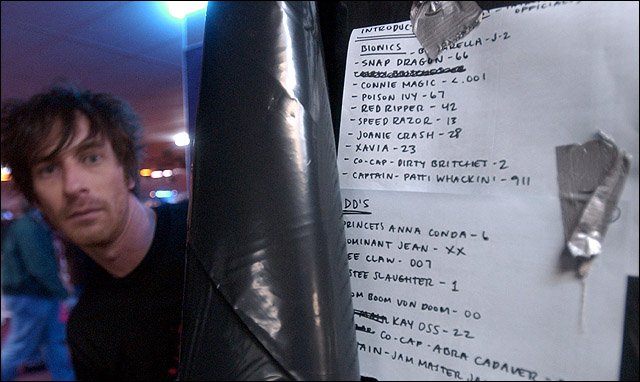 INTRODUC
OFFICIALS
BIONICS - B RELLA - J-2
- SNAP DRAGON - 66
- CONNIE MAGIC - <.001
- POISON IVY - 67
- RED RIPPER - 42
- SPEED RAZOR - 13
- JOANIE CRASH - 28
- XAVIA - 23
- CO-CAP - DIRTY BRITCHET - 2
- CAPTAIN - PATTI WHACKIN' - 911
DD'S
PRINCETS ANNA CONDA - 6
OMINANT JEAN - XX
EE CLAW - 007
STEE SLAUGHTER - 1
OM BOOM VON DOOM - 00
KAY OSS - 22
CO-CAP - ABRA CADAVER
TAIN - JAM MASTER JA